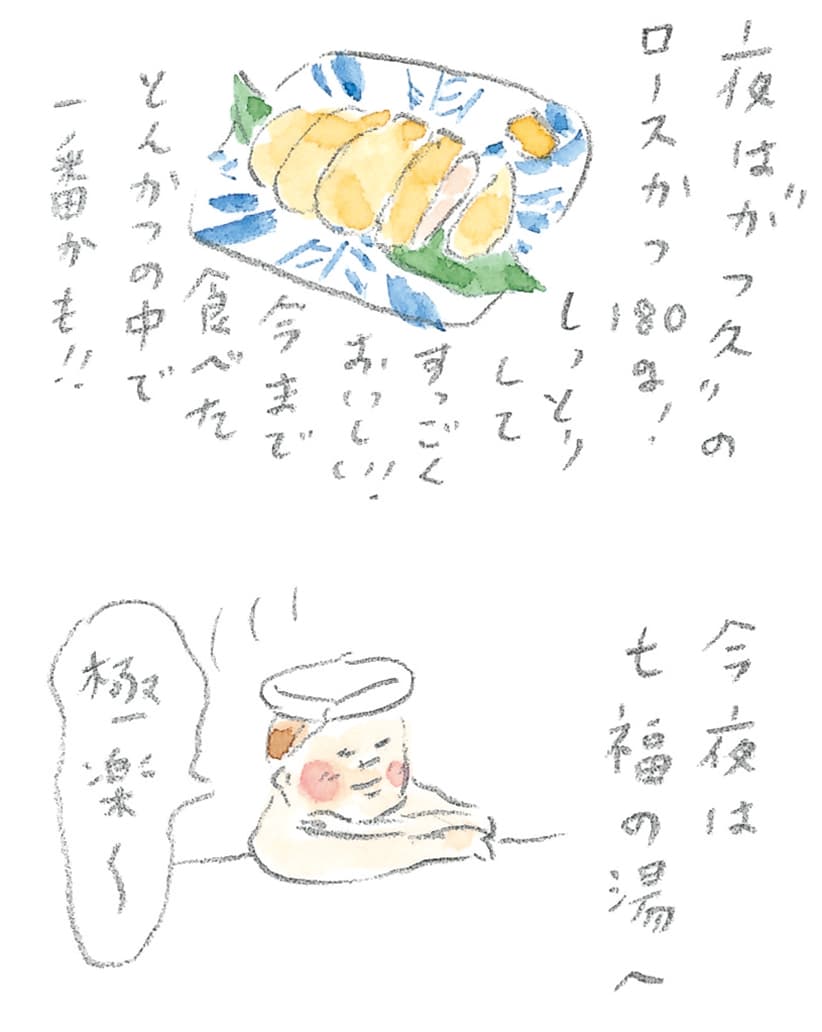 夜はがつツリの
ロースかつ
180g!
しっとり
して
すっごく
おいしい!!
今まで
食べた
とんかつの中で
一番かも!!
今夜は
七福の湯へ
極楽〜